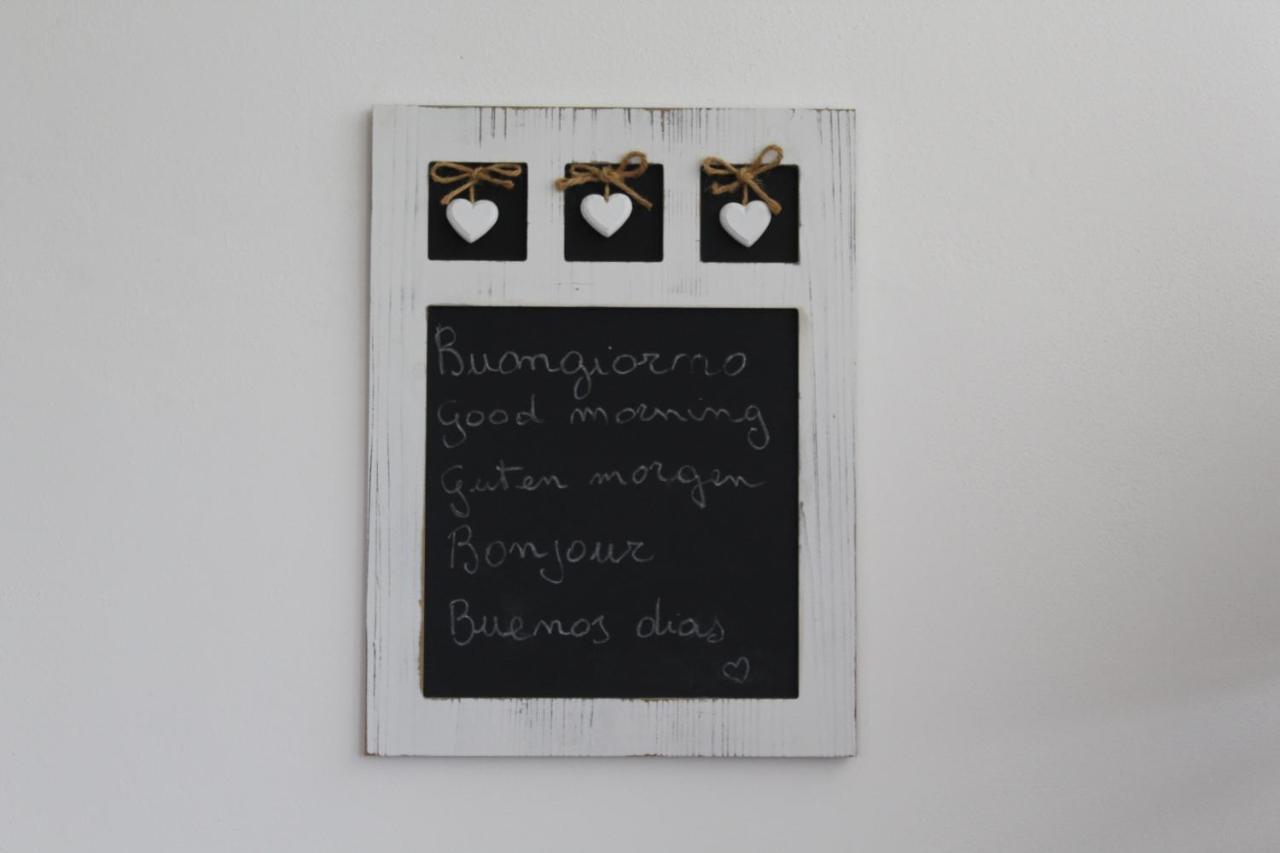 Buongiorno
Good morning
Guten morgen
Bonjour
Buenos dias